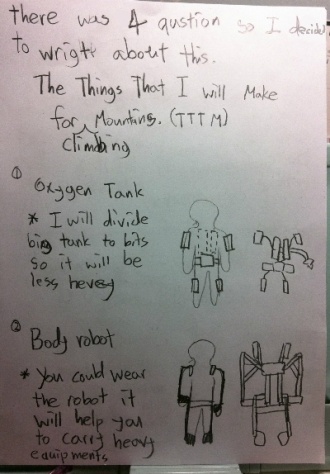 there was 4 qustion so I decided
to wright about this.
The Things That I will Make
for Mounting. (TTTM)
climbing
① Oxygen Tank
* I will divide
big tank to bits
so it will be
less hevey
② Body robot
* You could wear
the robot it
will help you
to carry heavy
equipments